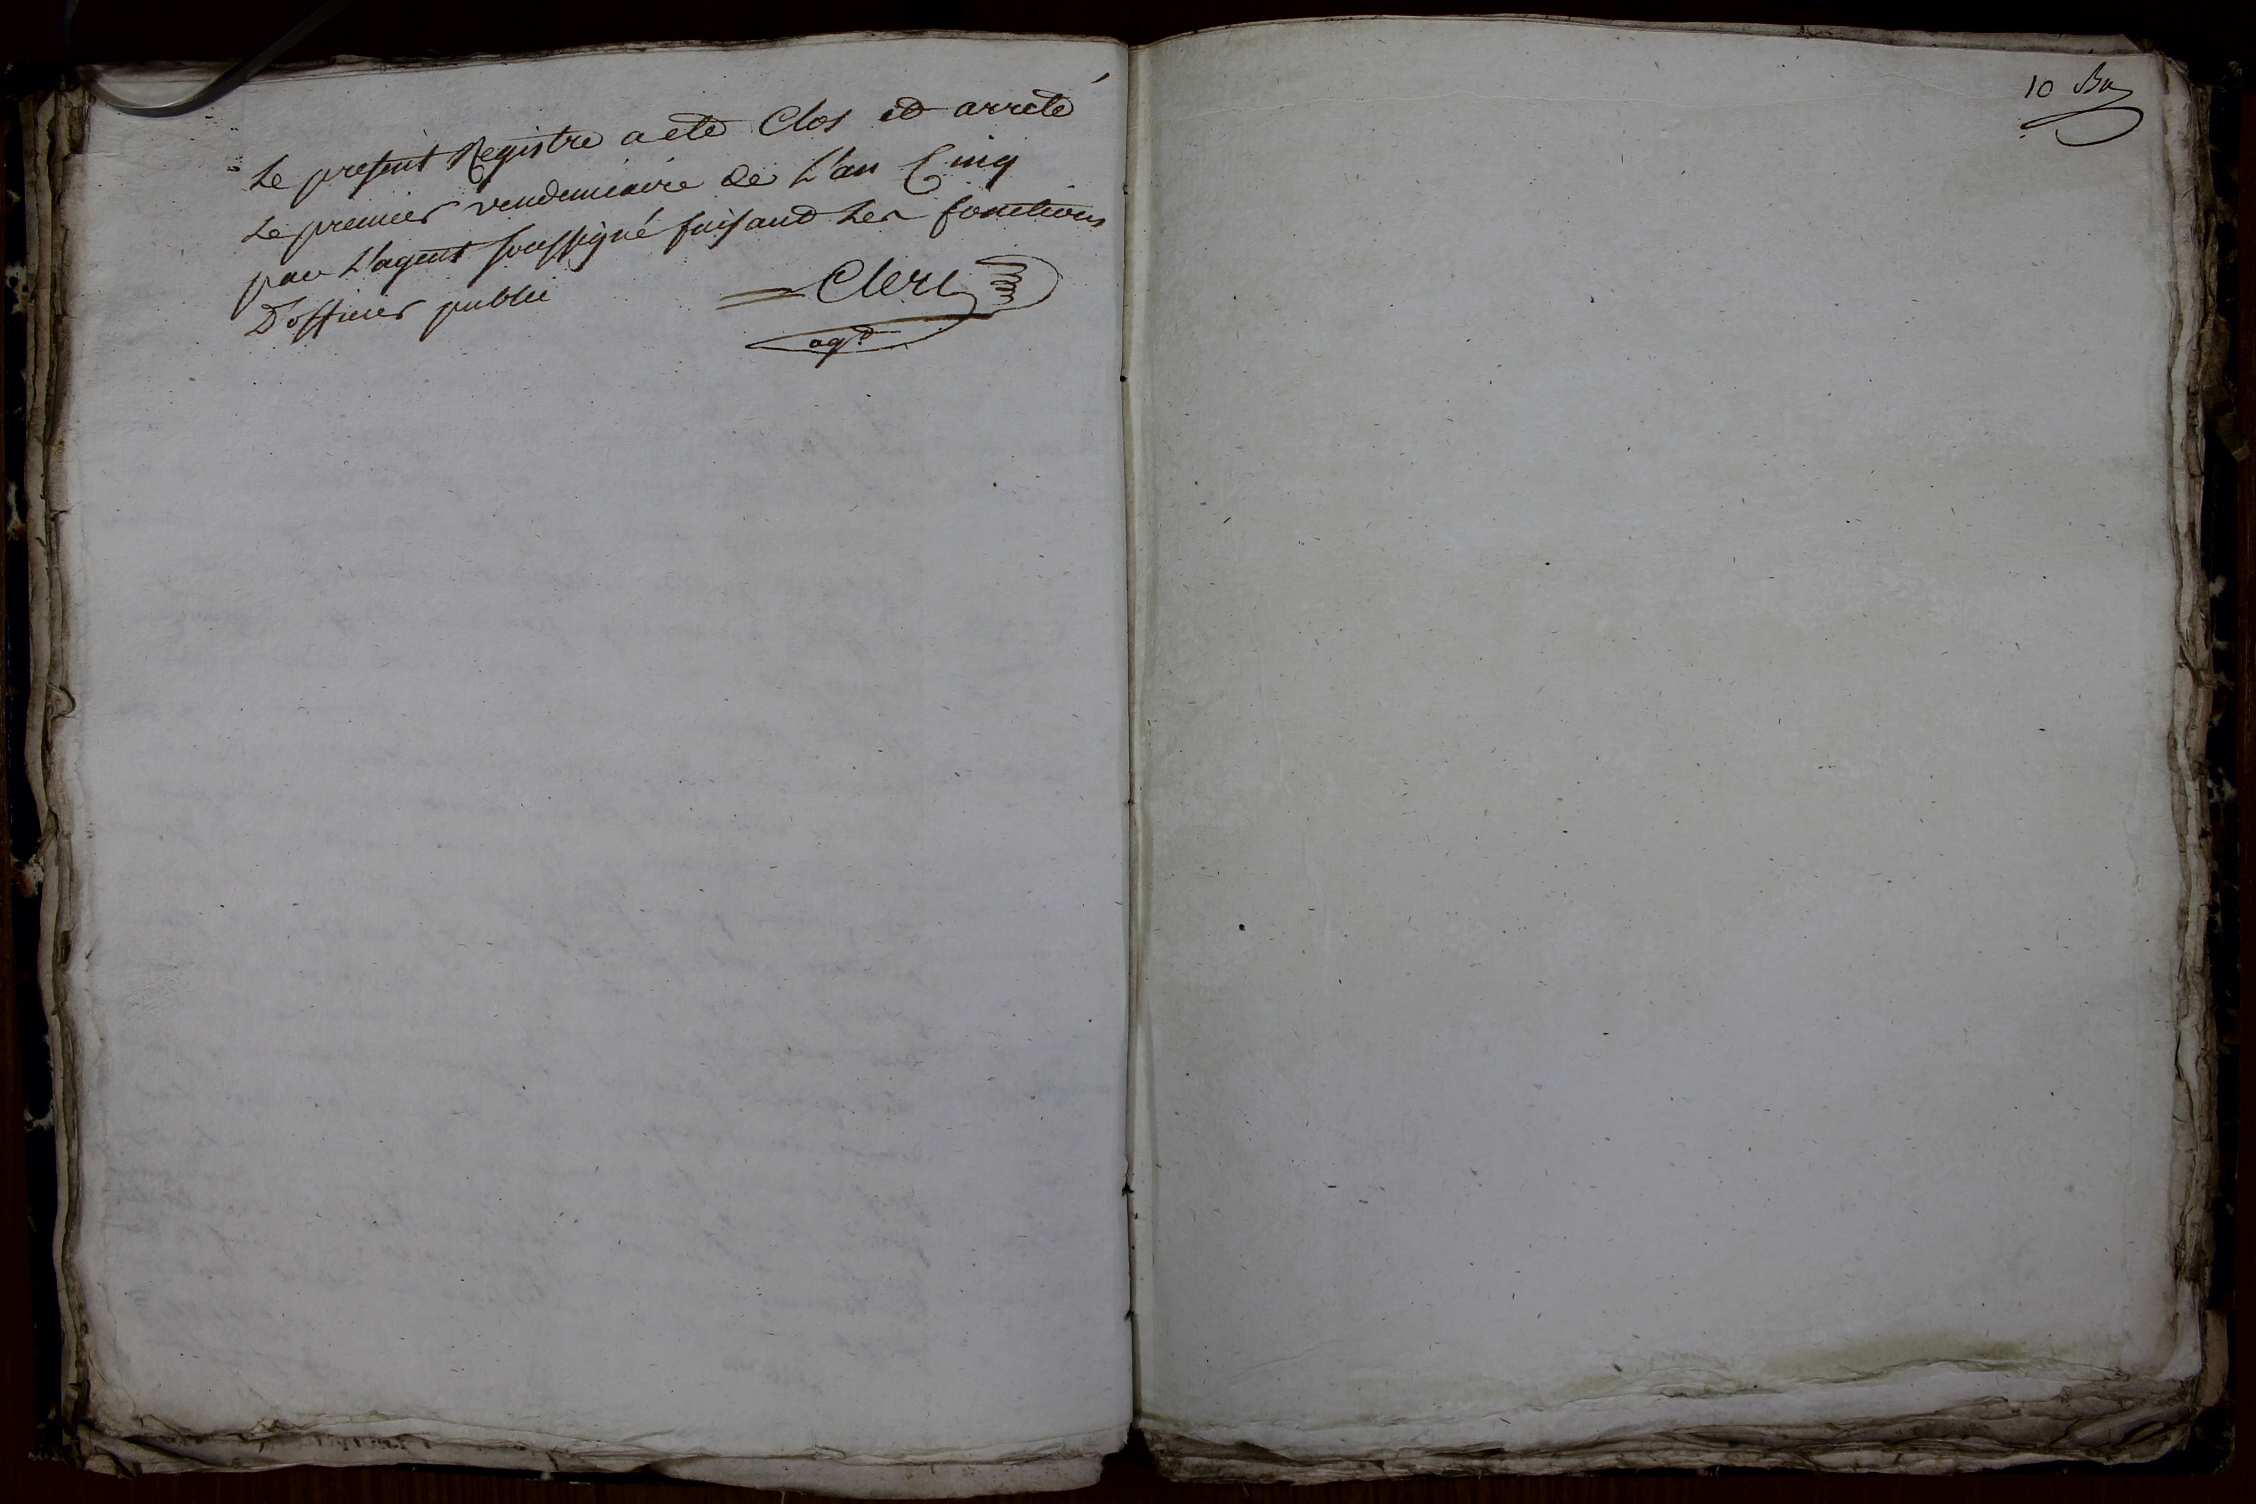 Le present Registre a ete Clos et arreté
Le premier vendemiaire de L'an Cinq
par L'agent soussigné faisant Les fonctions
D'officier public
Clerc
agt
10